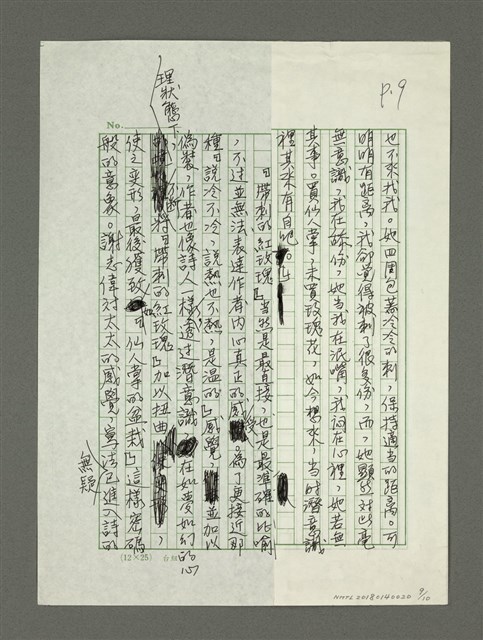 P.9
也不來找我。她四圍包著冷冷的刺，保持適當的距離。可
明明有距離，我卻覺得被刺了很多份，而，她顯然對此毫
無意識，我在條份，她當我在泯嘴，我詞在心裡，她若無
其事。買仙人掌，未買玫瑰花，如今想來，當時潛意識
裡其來有自吧。」
「帶刺的紅玫瑰」當然是最直接，也是最準確的比喻
，不过並無法表達作者內心真正的感覺。為了更接近那
種「說冷不冷，說熱也不熱，是溫的」感覺，並加以
偽裝，作者也像詩人一樣透过潛意識，在如夢如幻的心
理狀態下，不斷將「帶刺的紅玫瑰」加以扭曲，
使之变形，最後獲致如「仙人掌的盆栽」這樣密碼
般的意象。謝志偉对太太的感覺，無疑寫法已進入詩的
No.
(12×25)
NMTL20180140020 9/10